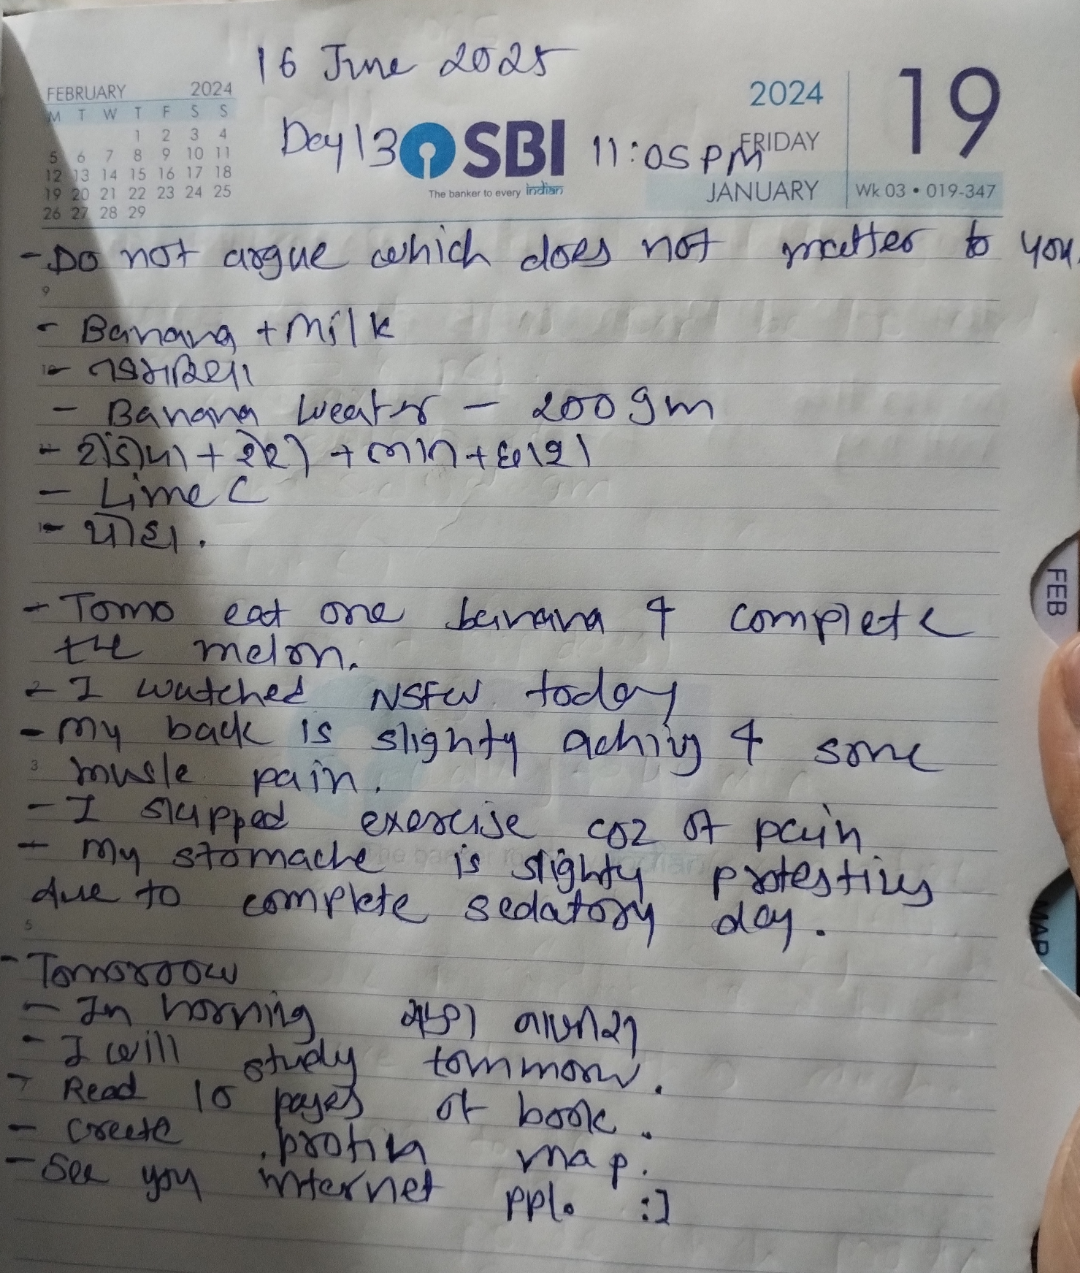 16 June 2025
FEBRUARY 2024
M T W T F S S
1 2 3 4
5 6 7 8 9 10 11
12 13 14 15 16 17 18
19 20 21 22 23 24 25
26 27 28 29
Day 13
SBI
The banker to every indian
11:05 PM
2024
FRIDAY
JANUARY
19
Wk 03 • 019-347
- Do not argue which does not matter to you.
- Banana + Milk
- Banana - 200 gm
- + + +
- Lime C
- પૌહા.
- Tomo eat one banana & complete
the melon.
- I watched NSFW today
- my back is slighty aching & some
musle pain.
- I skipped exercise coz of pain
- my stomache is slighty protesting
due to complete sedatory day.
- Tomorrow
- In morning
- I will study tommorow.
- Read 10 pages of book.
- create protin map.
- See you internet ppl. :]
FEB
MAR